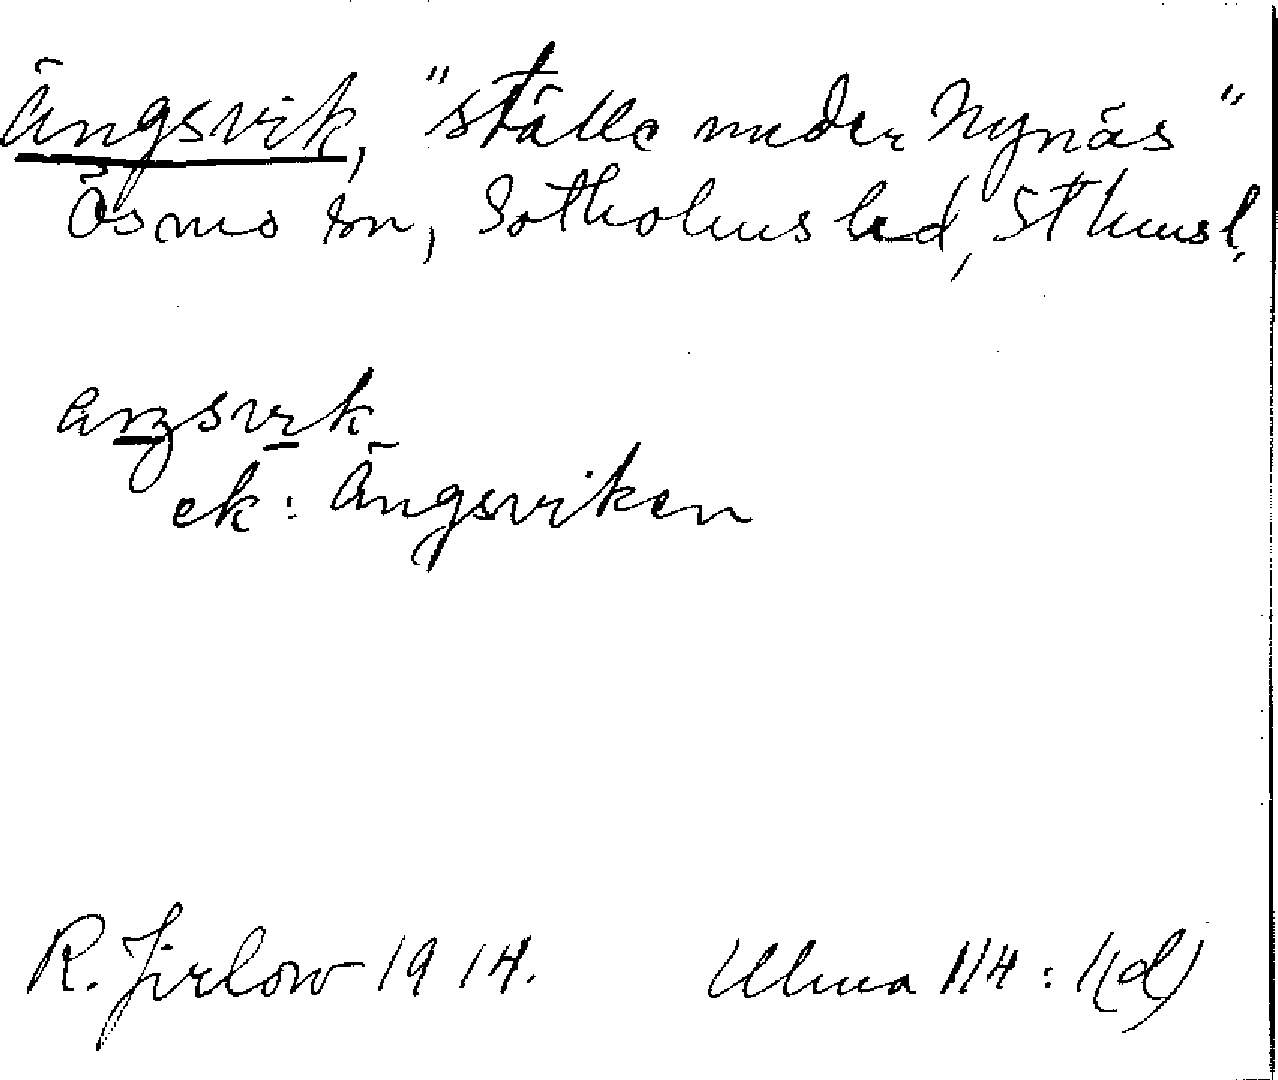 Ängsvik, "ställe under Nynäs"
Ösmo sn, Sotholms hd, Sthmsl.
ek: Ängsviken
R. Jirlow 1914. Ulma 114: 1(d)